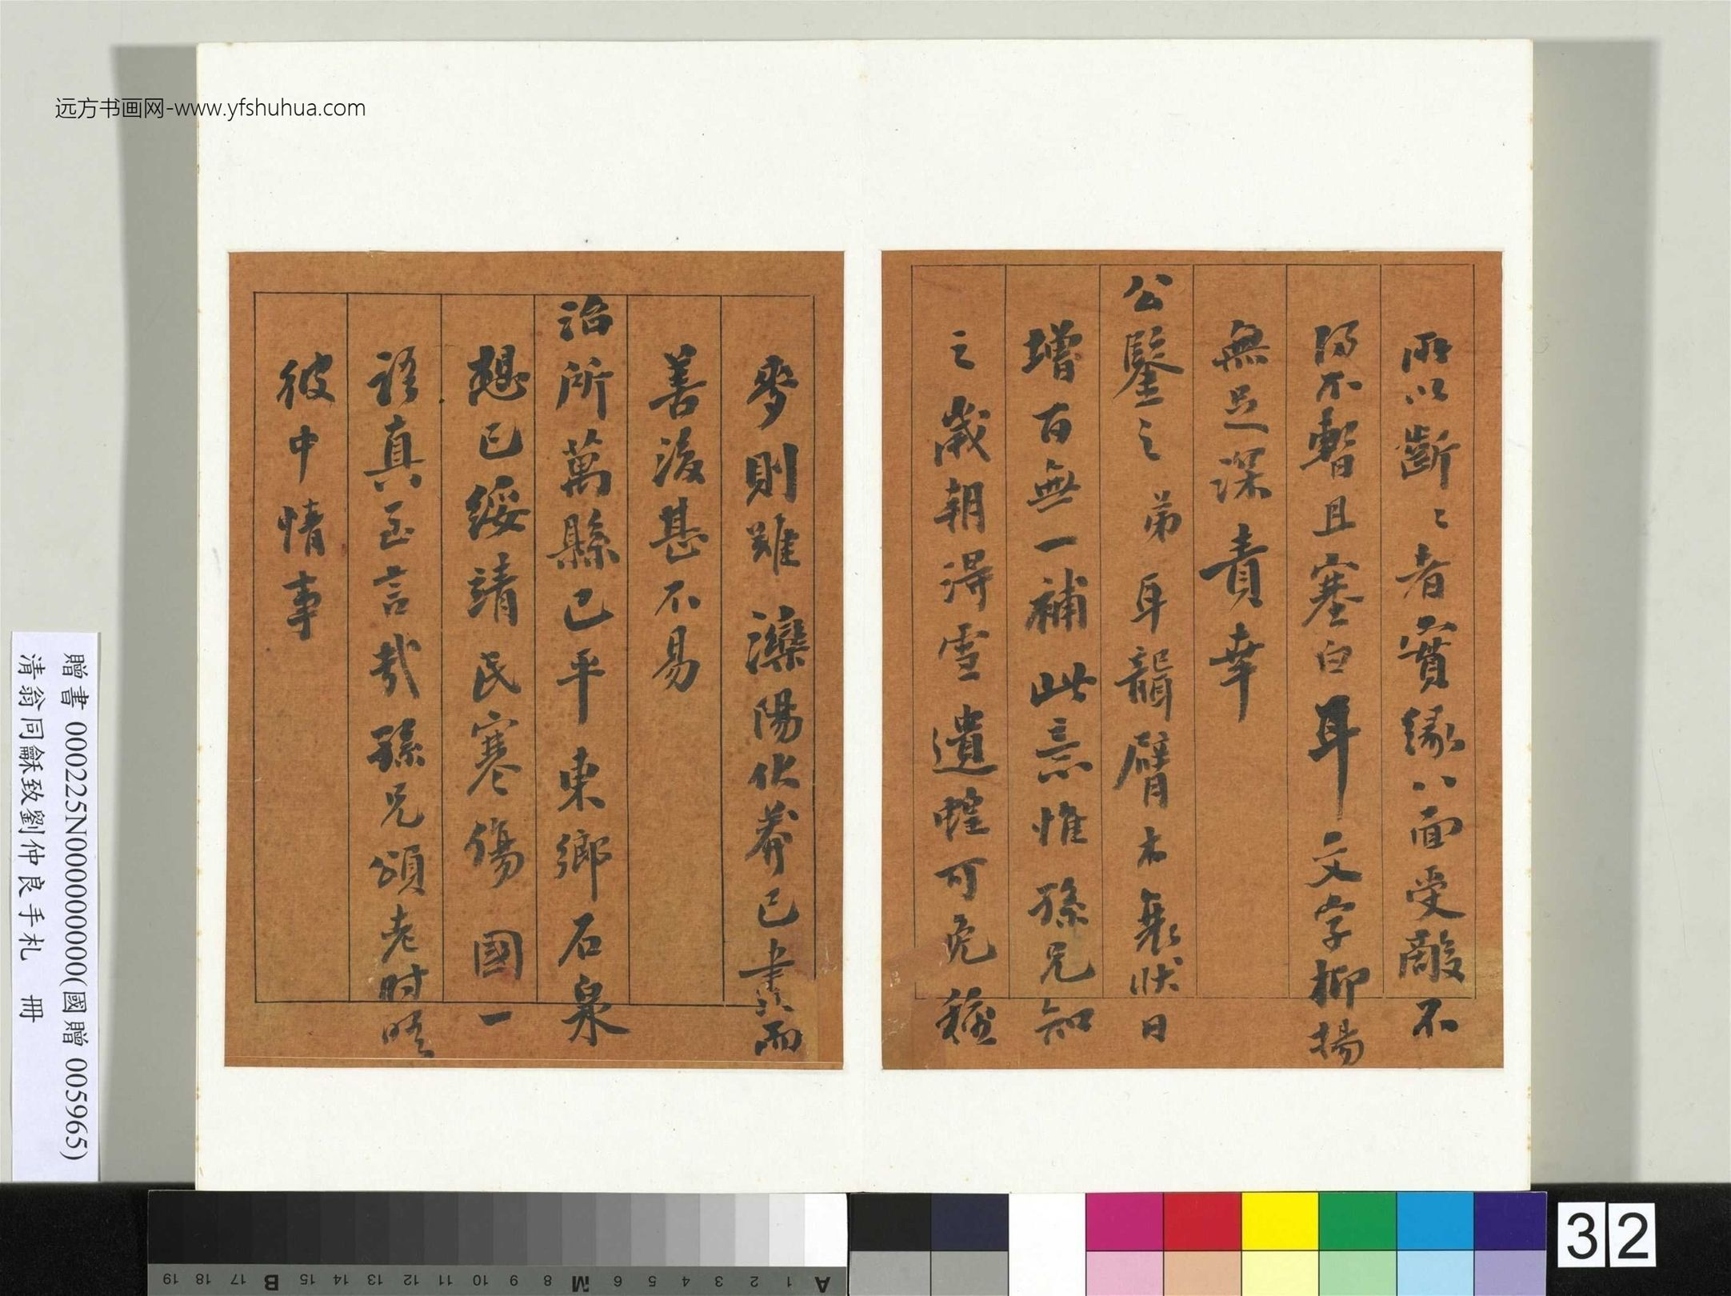 远方书画网-www.yfshuhua.com
所以斷〻者實緣八面受敵不
得不暫且塞白耳文字抑揚
無足深責幸
公鑒之弟耳聾臂木衰狀日
增百無一補此意惟孫兄知
之歲朝得雪遺蝗可免種
麥則難灤陽伏莽已盡而
善後甚不易
治所萬縣已平東鄉石泉
想已綏靖民寒傷國一
語真至言哉孫兄頌老時晤
彼中情事
贈書 000225N000000000(國贈 005965)
清翁同龢致劉仲良手札 冊
A 1 2 3 4 5 6 M 8 9 10 11 12 13 14 15 B 17 18 19
32